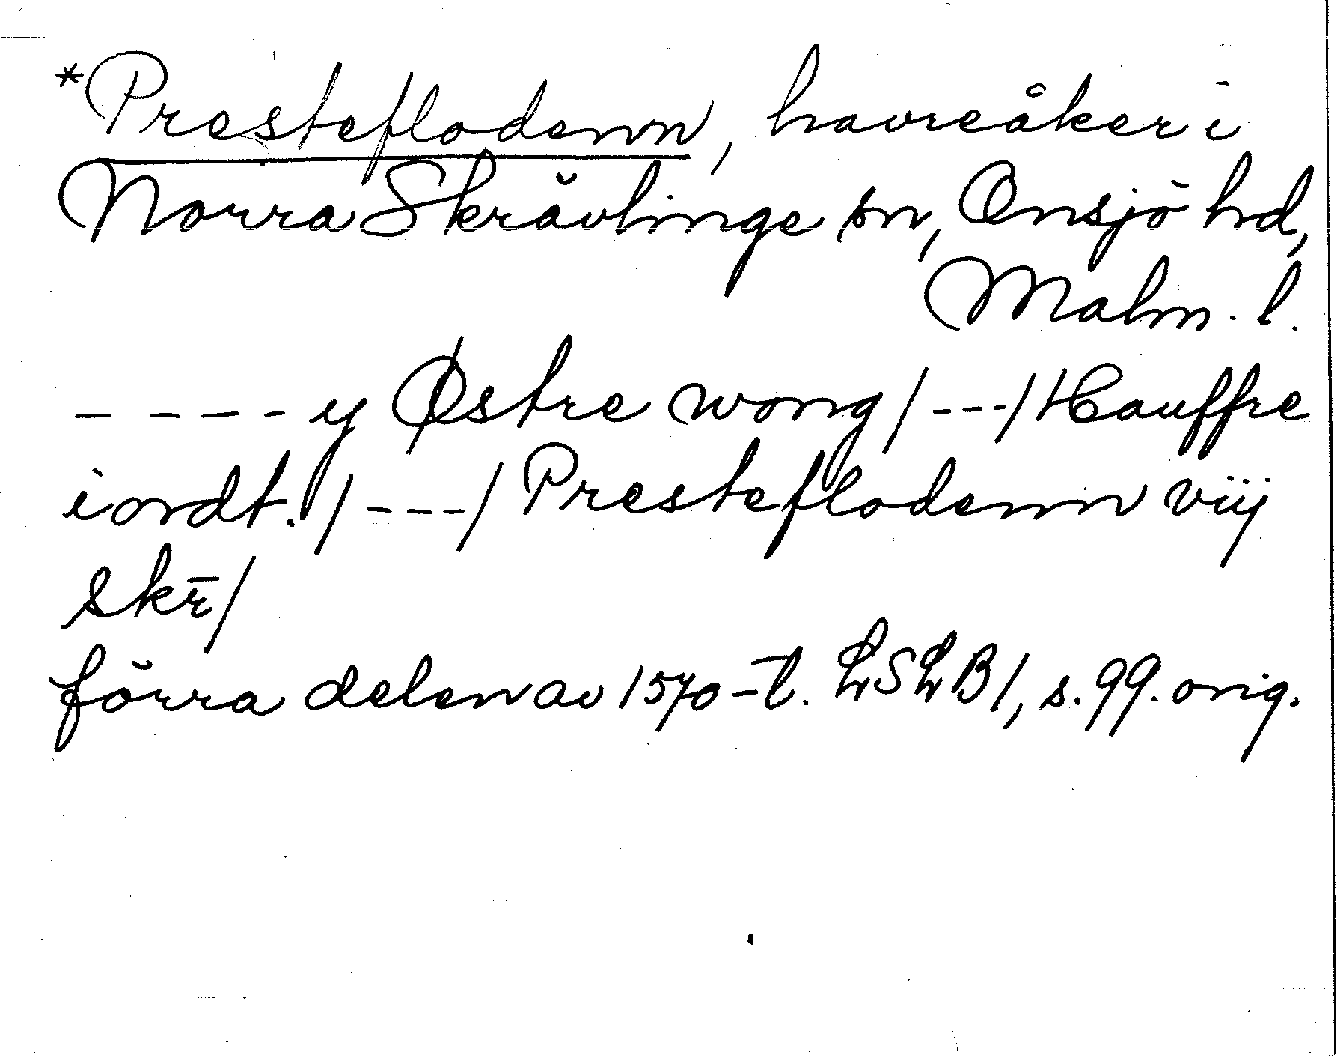 *Presteflodenn, havreåker i
Norra Skrävlinge sn, Onsjö hd,
Malm. l.
– – – – y Østre wong / --- / Hauffre
iordt. / --- / Presteflodenn viij
skr̄ /
förra delen av 1570-t. LSLB1, s. 99. orig.